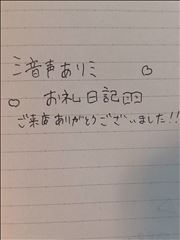 ミ音声ありミ
お礼日記
ご来店ありがとうございました!!